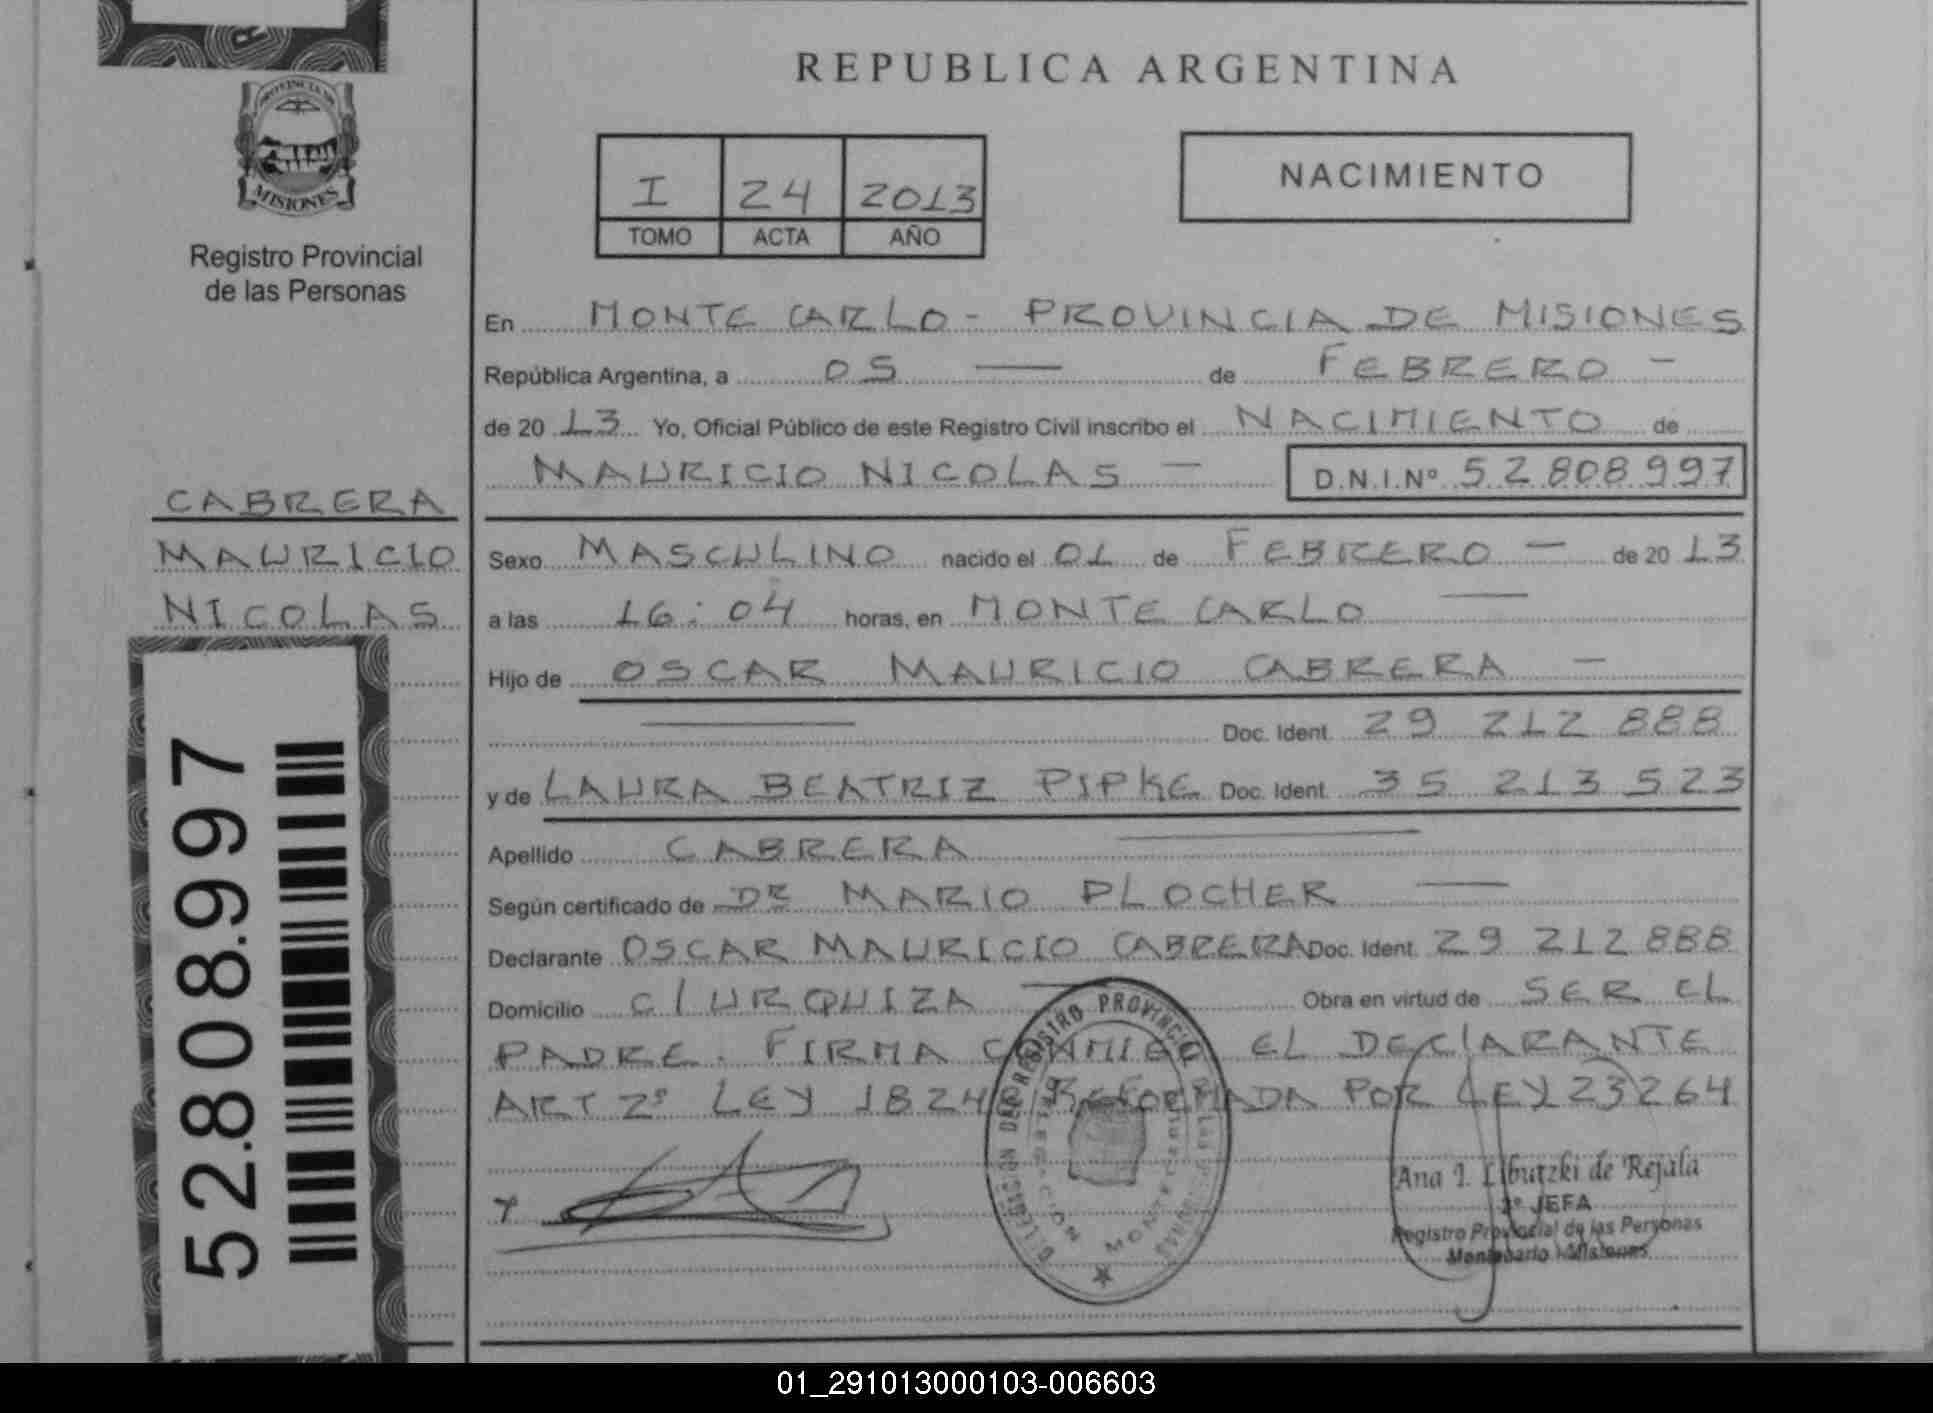 PROVINCIA DE
MISIONES
Registro Provincial
de las Personas
CABRERA
MAURICIO
NICOLAS
52.808.997
REPUBLICA ARGENTINA
I 24 2013
TOMO ACTA AÑO
NACIMIENTO
En MONTE CARLO - PROVINCIA DE MISIONES
República Argentina, a 05 — de FEBRERO —
de 2013 Yo, Oficial Público de este Registro Civil inscribo el NACIMIENTO de
MAURICIO NICOLAS — D.N.I.Nº 52 808 997
Sexo MASCULINO nacido el 01 de FEBRERO — de 2013
a las 16:04 horas, en MONTE CARLO —
Hijo de OSCAR MAURICIO CABRERA —
— Doc. Ident. 29 212 888
y de LAURA BEATRIZ PIPKE Doc. Ident. 35 213 523
Apellido CABRERA —
Según certificado de DR MARIO PLOCHER —
Declarante OSCAR MAURICIO CABRERA Doc. Ident. 29 212 888
Domicilio C/ URQUIZA — Obra en virtud de SER EL
PADRE. FIRMA CONMIGO EL DEClARANTE
ART 2º LEY 18248 REFORMADA POR LEY 23264
DELEGACION MONTECARLO
Ana I. Libutzki de Rejala
2º JEFA
Registro Provincial de las Personas
Montecarlo - Misiones
01_291013000103-006603